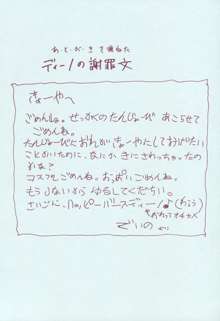 あ・と・が・き を兼ねた
ディーノの謝罪文
きょーやへ
ごめんしゃ。せっかくのたんじょーび あこらせて
ごめんね。
たんじょーびにおれが きょーやたしておびたい
ことがいたのに、なにか きにさわっちゃったの
かな?
コスプレごめんね。おっぱいごめんね。
もうしないから ゆるしてください。
さいごに、ハッピーバースディーノ♪(わらう)
でいの より